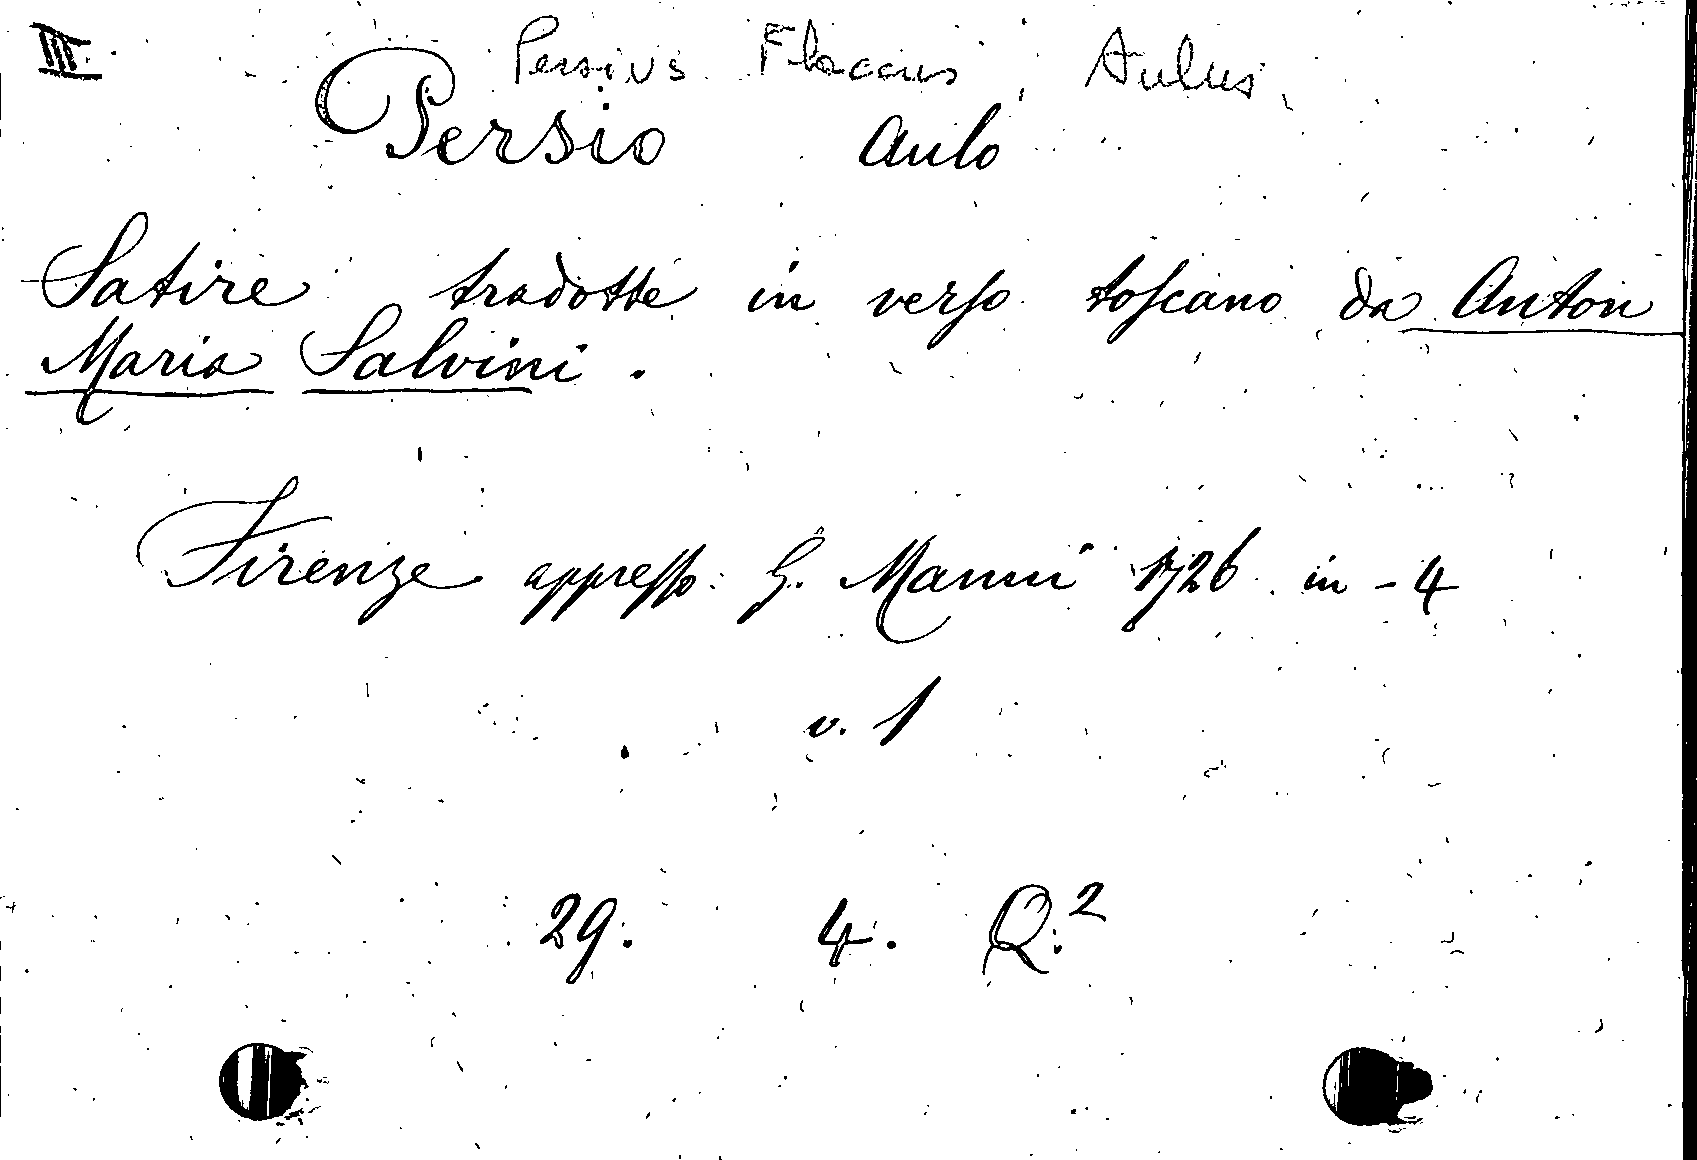 III.
Persius Flaccus, Aulus.
Persio Aulo
Satire tradotte in verso toscano da Anton
Maria Salvini.
Firenze appresso G. Manni 1726 in-4
v. 1
29. 4. Q.²